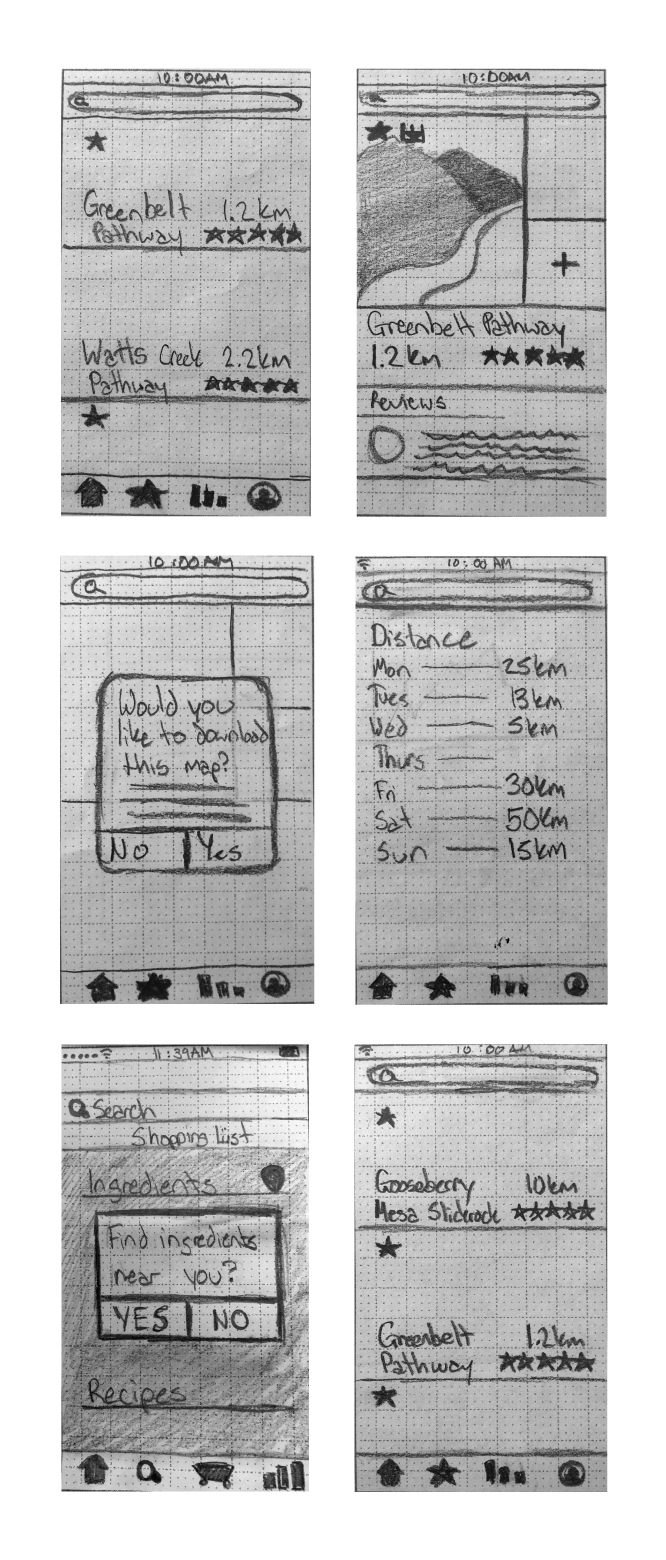 10:00AM
Greenbelt 1.2km
Pathway
Watts Creek 2.2km
Pathway
10:00AM
Greenbelt Pathway
1.2km
Reviews
10:00AM
Would you
like to download
this map?
No Yes
10:00 AM
Distance
Mon 25km
Tues 13km
Wed 5km
Thurs
Fri 30km
Sat 50km
Sun 15km
11:39AM
Search
Shopping List
Ingredients
Find ingredients
near you?
YES NO
Recipes
10:00 AM
Gooseberry 10km
Mesa Slickrock
Greenbelt 1.2km
Pathway